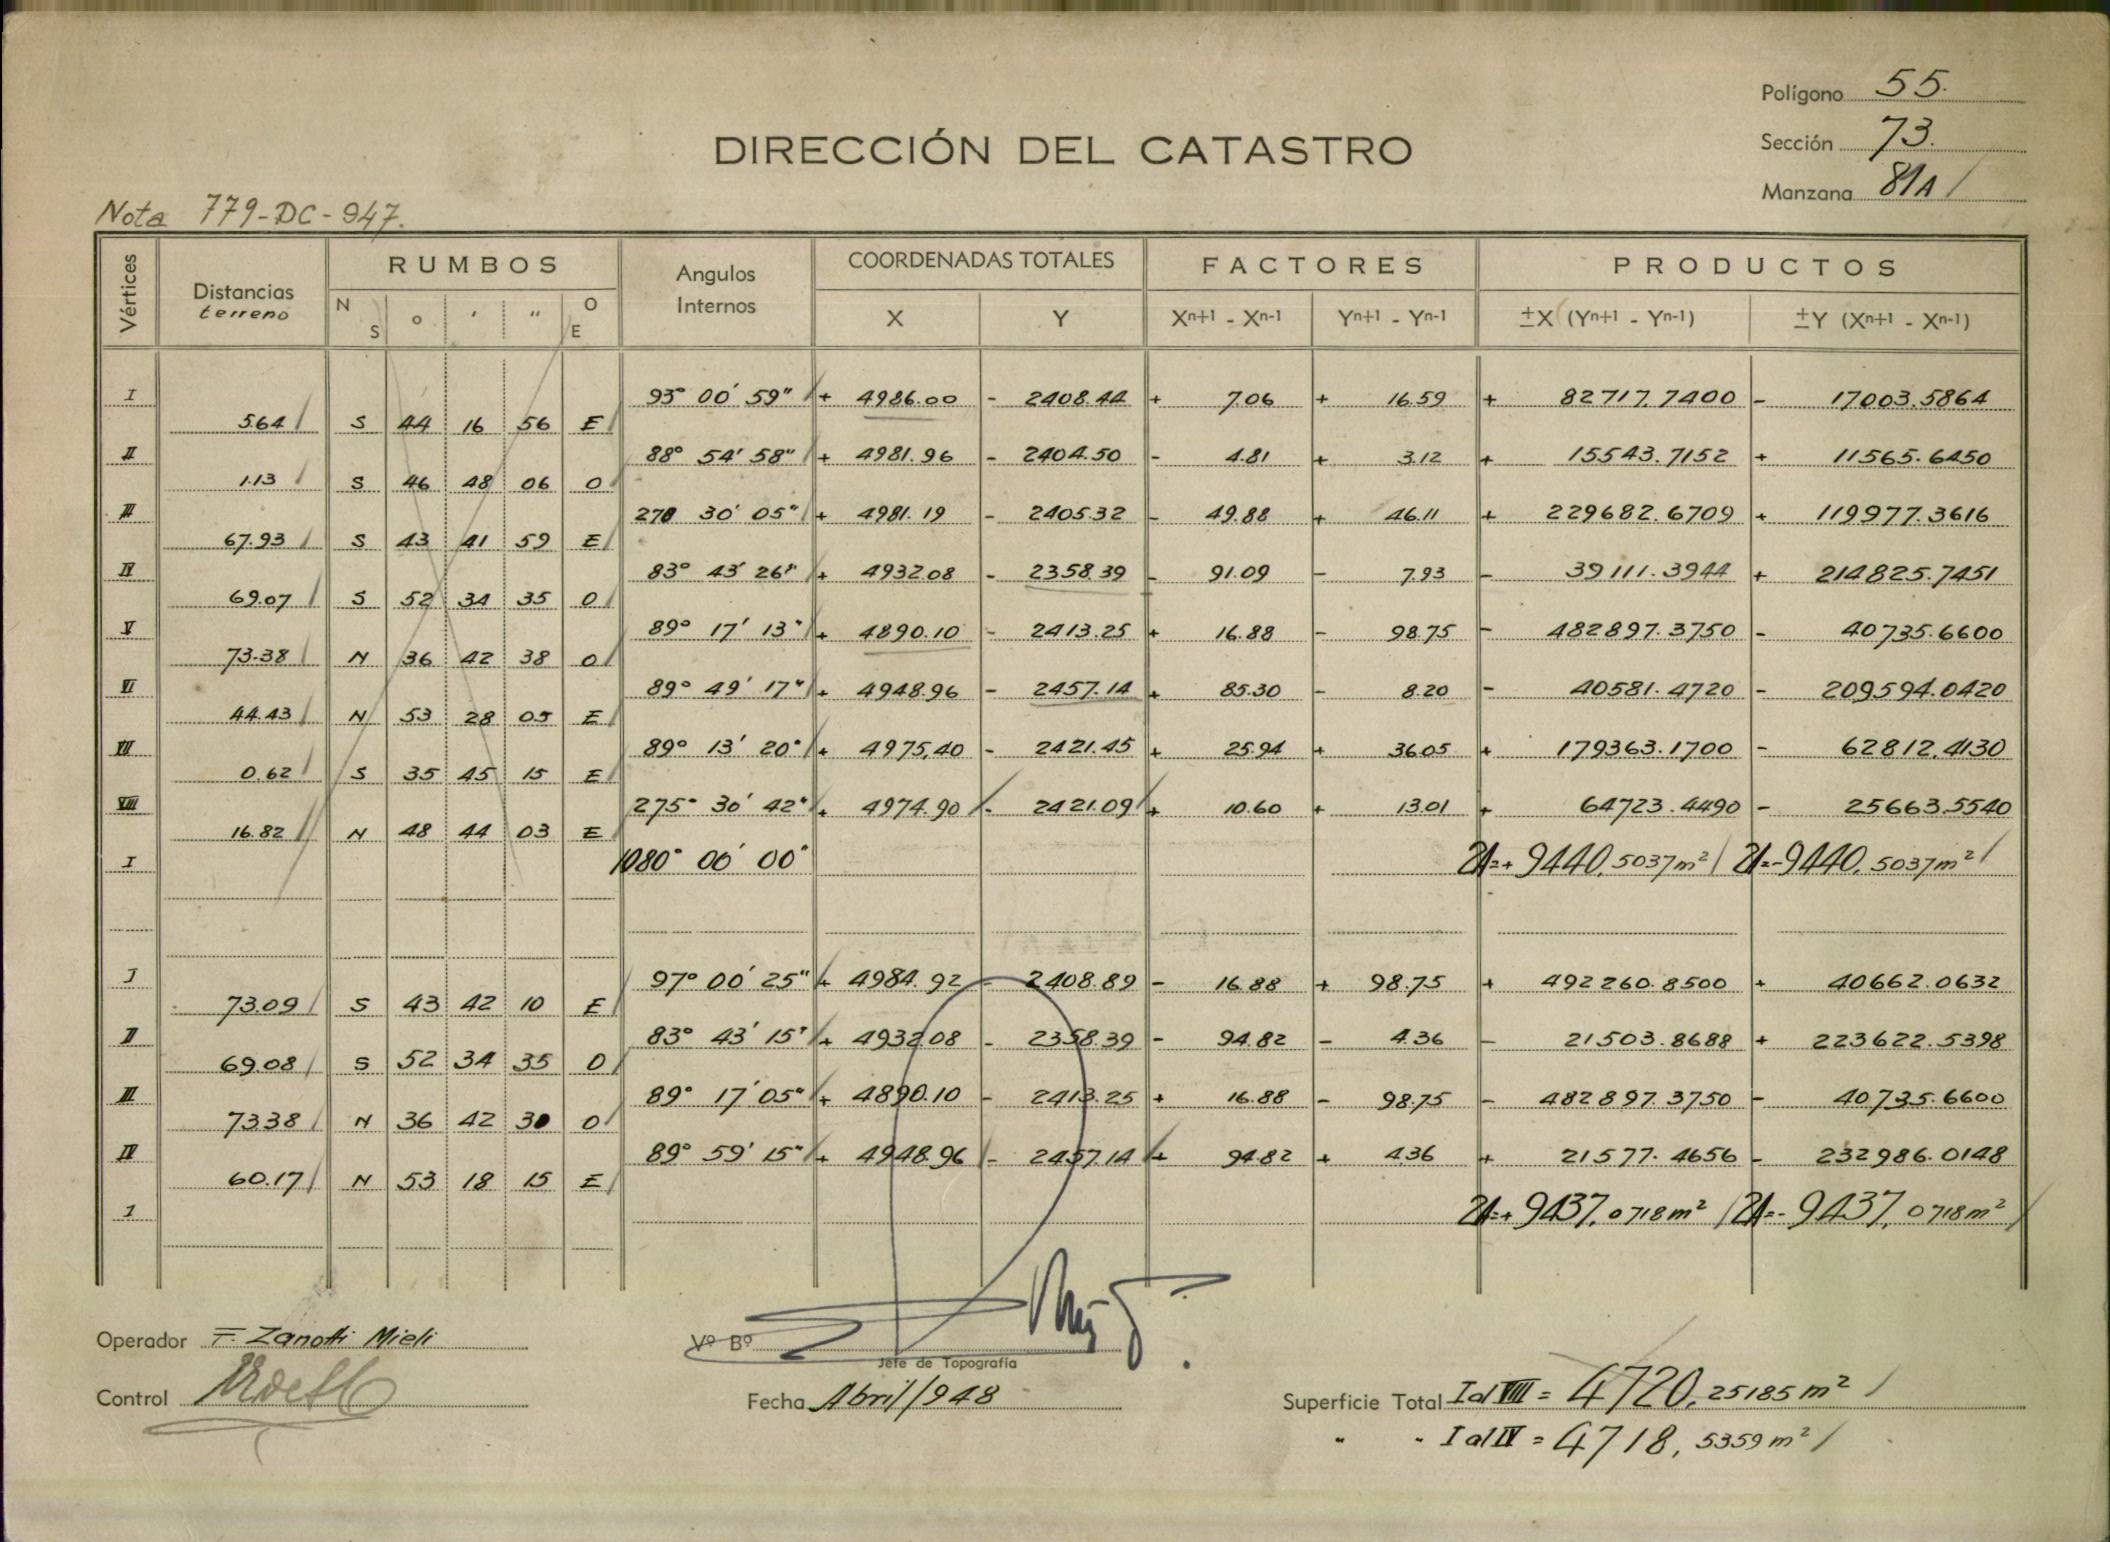 Polígono 55.
DIRECCIÓN DEL CATASTRO
Sección 73.
Manzana 81A
Nota 779-DC-947.
Vértices Distancias terreno RUMBOS Angulos Internos COORDENADAS TOTALES FACTORES PRODUCTOS
N S o ' " O E X Y Xn+1 - Xn-1 Yn+1 - Yn-1 ±X (Yn+1 - Yn-1) ±Y (Xn+1 - Xn-1)
I 93° 00' 59" + 4986.00 - 2408.44 + 7.06 + 16.59 + 82717.7400 - 17003.5864
5.64 S 44 16 56 E
II 88° 54' 58" + 4981.96 - 2404.50 - 4.81 + 3.12 + 15543.7152 + 11565.6450
1.13 S 46 48 06 O
III 270 30' 05" + 4981.19 - 2405.32 - 49.88 + 46.11 + 229682.6709 + 119977.3616
67.93 S 43 41 59 E
IV 83° 43' 26" + 4932.08 - 2358.39 - 91.09 - 7.93 - 39111.3944 + 214825.7451
69.07 S 52 34 35 O
V 89° 17' 13" + 4890.10 - 2413.25 + 16.88 - 98.75 - 482897.3750 - 40735.6600
73.38 N 36 42 38 O
VI 89° 49' 17" + 4948.96 - 2457.14 + 85.30 - 8.20 - 40581.4720 - 209594.0420
44.43 N 53 28 05 E
VII 89° 13' 20" + 4975,40 - 2421.45 + 25.94 + 36.05 + 179363.1700 - 62812.4130
0.62 S 35 45 15 E
VIII 275° 30' 42" + 4974.90 - 2421.09 + 10.60 + 13.01 + 64723.4490 - 25663.5540
16.82 N 48 44 03 E
I 1080° 00' 00" 2A=+ 9440,5037m² 2A=-9440,5037m²
I 97° 00' 25" + 4984.92 - 2408.89 - 16.88 + 98.75 + 492260.8500 + 40662.0632
73.09 S 43 42 10 E
II 83° 43' 15" + 4932.08 - 2358.39 - 94.82 - 4.36 - 21503.8688 + 223622.5398
69.08 S 52 34 35 O
III 89° 17' 05" + 4890.10 - 2413.25 + 16.88 - 98.75 - 482897.3750 - 40735.6600
73.38 N 36 42 30 O
IV 89° 59' 15" + 4948.96 - 2457.14 + 94.82 + 4.36 + 21577.4656 - 232986.0148
60.17 N 53 18 15 E
I 2A=+ 9437,0718m² 2A=- 9437,0718m²
Operador F. Zanotti Mieli
Vº Bº
Jefe de Topografía
Control
Fecha Abril/948
Superficie Total I al VIII = 4720,25185 m²
" " I al IV = 4718,5359 m²